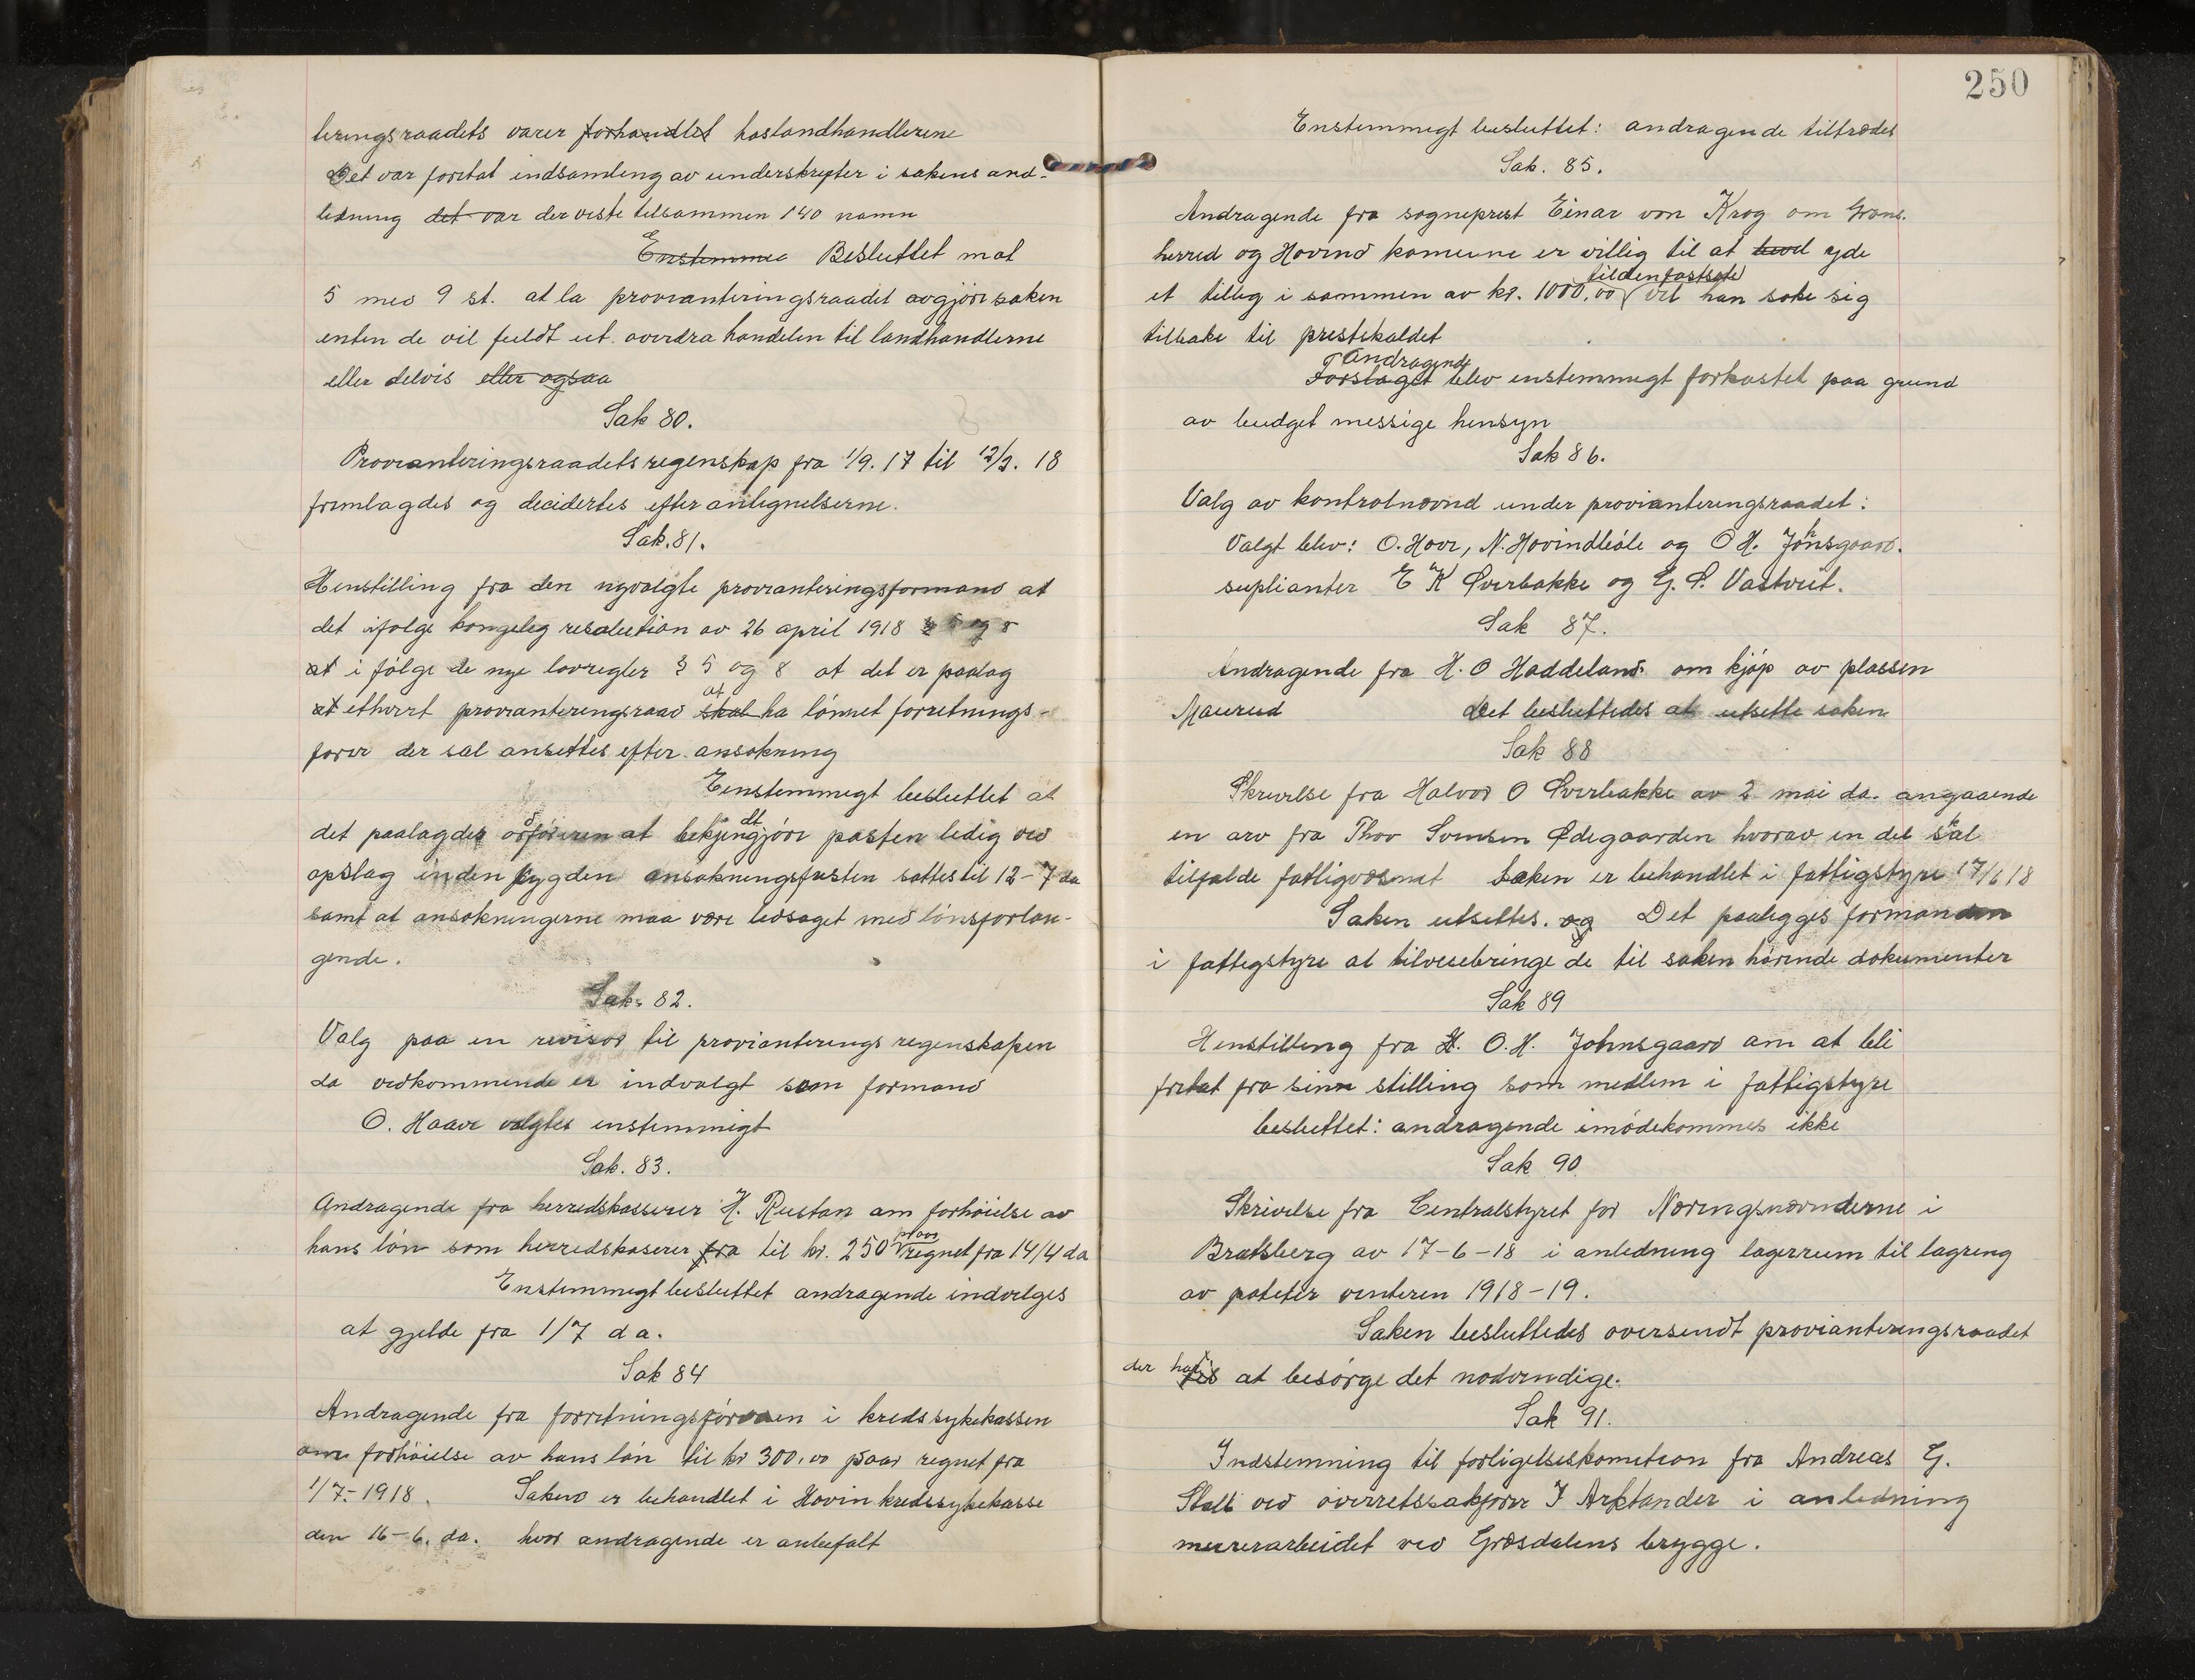 teringsraadets varer forhandlet hoslandhandlerene
Det var foretat indsamleng av underskrifter i sakens and-
ledning det var der viste telsammen 140 namn
Enstemmi Besluttet mot
5 med 9 st. at la provianteringsraadet avgjøre saken
enten de vil fuldt ut overdra handelen til landhandlerne
eller delvis eller ogsaa
Sak 80.
Provianteringsraadets regenskap fra 1/9. 17 til 12/2. 18
fremlagdes og decidertes efter antegnelserne.
Sak. 81.
Henstilling fra den nyvalgte provianteringsformand at
det ifølge kongeleg resolution av 26 april 1918 § 5 og 8
at i følge de nye lovregler § 5 og 8 at det er paalag
at ethvert provianteringsraad skal at ha lønnet forretnings-
fører der sal ansettes efter ansøkning
Eenstemmegt besluttet at
det paalagdes ordføreren at bekjendtgjøre posten ledig ved
opslag inden bygden ansøkningsfristen sattes til 12-7 da
samt at ansøkningerne maa være ledsaget med lønsforlan-
gende.
Sak. 82.
Valg paa en revisor til provianterings regenskapen
da vedkommende er indvalgt som formand
O. Haave valgtes enstemmigt
Sak. 83.
Andragende fra herredskasserer H. Rustan om forhøielse av
hans løn som herredskaserer fra til kr. 250 pr aar regnet fra 14/4 da
Enstemmegt besluttet andragende indvilges
at gjelde fra 1/7 da.
Sak 84
Andragende fra forretningsføreren i kredssykekassen
om forhøielse av hans løn til kr 300,00 paar regnet fra
1/7-1918. Saken er behandlet i Hovin kredssykekasse
den 16-6. da. hvor andragende er anbefalt
250
Enstemmegt besluttet: andragende tiltrædes
Sak. 85.
Andragende fra sogneprest Einar von Krog om Grans-
herred og Hovind komune er villig til at yde
et tilleg i sammen av kr. 1000,00 til den fastsatte vil han søke sig
tilbake til prestekaldet
Forslaget Andragende blev enstemmegt forkastet paa grund
av budget messige hensyn
Sak 86.
Valg av kontrolnævnd under provianteringsraadet:
Valgt blev: O. Hove, N. Hovindbøle og O H. Johnsgaard.
suplianter E K Øverbakke og G. S. Vastveit.
Sak 87.
Andragende fra H. O Haddeland om kjøp av plassen
Maurud Det besluttedes at utsette saken
Sak 88
Skrivelse fra Halvor O Øverbakke av 2 mai da. angaaende
en arv fra Thov Svensen Ødegaarden hvorav en del skal
tilfalde fattigvæsnet Saken er behandlet i fattigstyre 17/6 18
Saken utsettes. og Det paalegges formanden
i fattegstyre at tilvesebringe de til saken hørende dokumenter
Sak 89
Henstilling fra H. O. H. Johnsgaard om at bli
fritat fra sinn stilling som medlem i fattigstyre
besluttet: andragende imødekommes ikke
Sak 90
Skrivelse fra Centralstyret for Næringsnævnderne i
Bratsberg av 17-6-18 i anledning lagerrum til lagreng
av poteter venteren 1918-19.
Saken besluttedes oversendt provianteringsraadet
der har at besørge det nødvendige.
Sak 91.
Indstemning til forligelseskometion fra Andreas G.
ved overretssakfører I Arktander i anledning
murerarbeidet ved Græsdalens brygge.